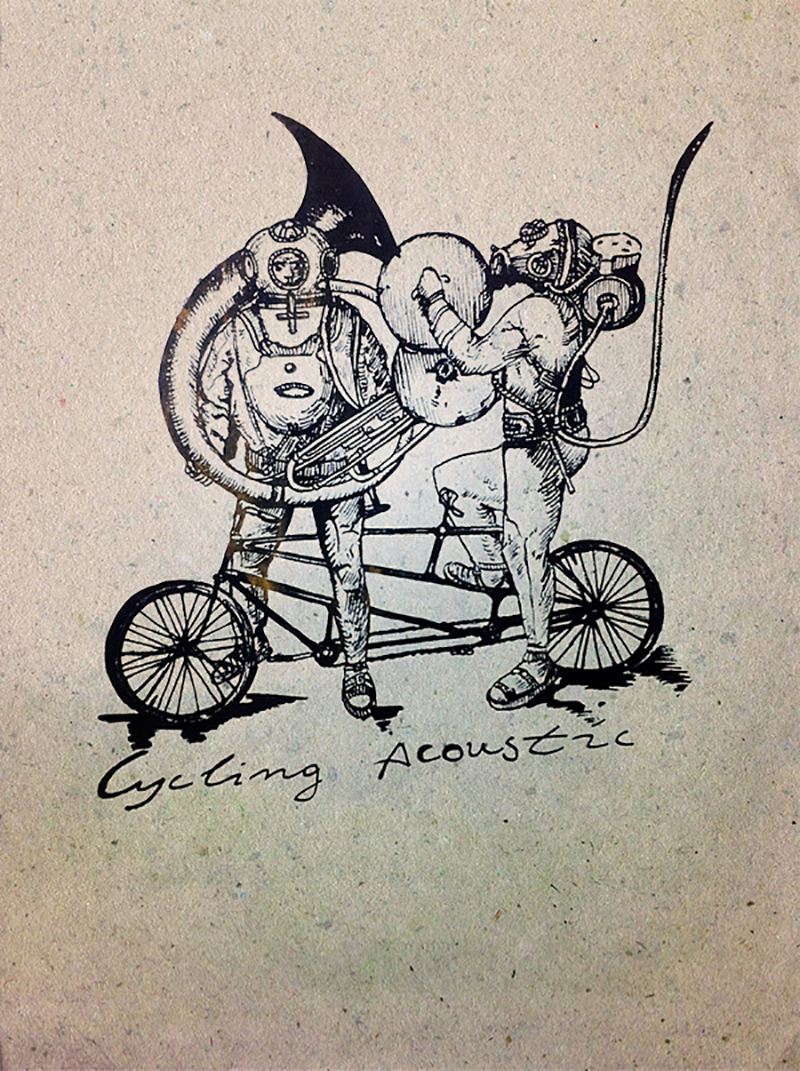 Cycling Acoustic